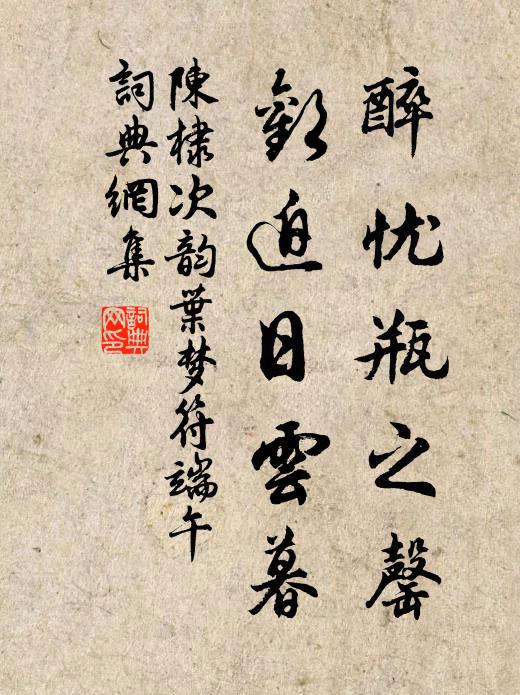 醉忧瓶之罄
歡迫日雲暮
陳棣次韵葉梦符端午
詞典網集
詞典
网印